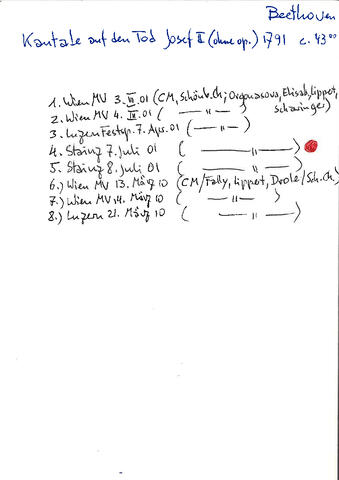 Beethoven
Kantate auf den Tod Josef II (ohne op.) 1791 c. 43°°
1. Wien MV 3. IV. 01 (CM, Schönb. Ch; Orgonasova, Elisab, Lippert,
Scharinger)
2. Wien MV 4. IV. 01 ( — " — )
3. Luzern Festsp. 7. Apr. 01 ( — " — )
4. Stainz 7. Juli 01 ( — " — )
5. Stainz 8. Juli 01 ( — " — )
6.) Wien MV 13. März 10 (CM/Fally, Lippert, Drole/Sch. Ch.)
7.) Wien MV 14. März 10 ( — " — )
8.) Luzern 21. März 10 ( — " — )